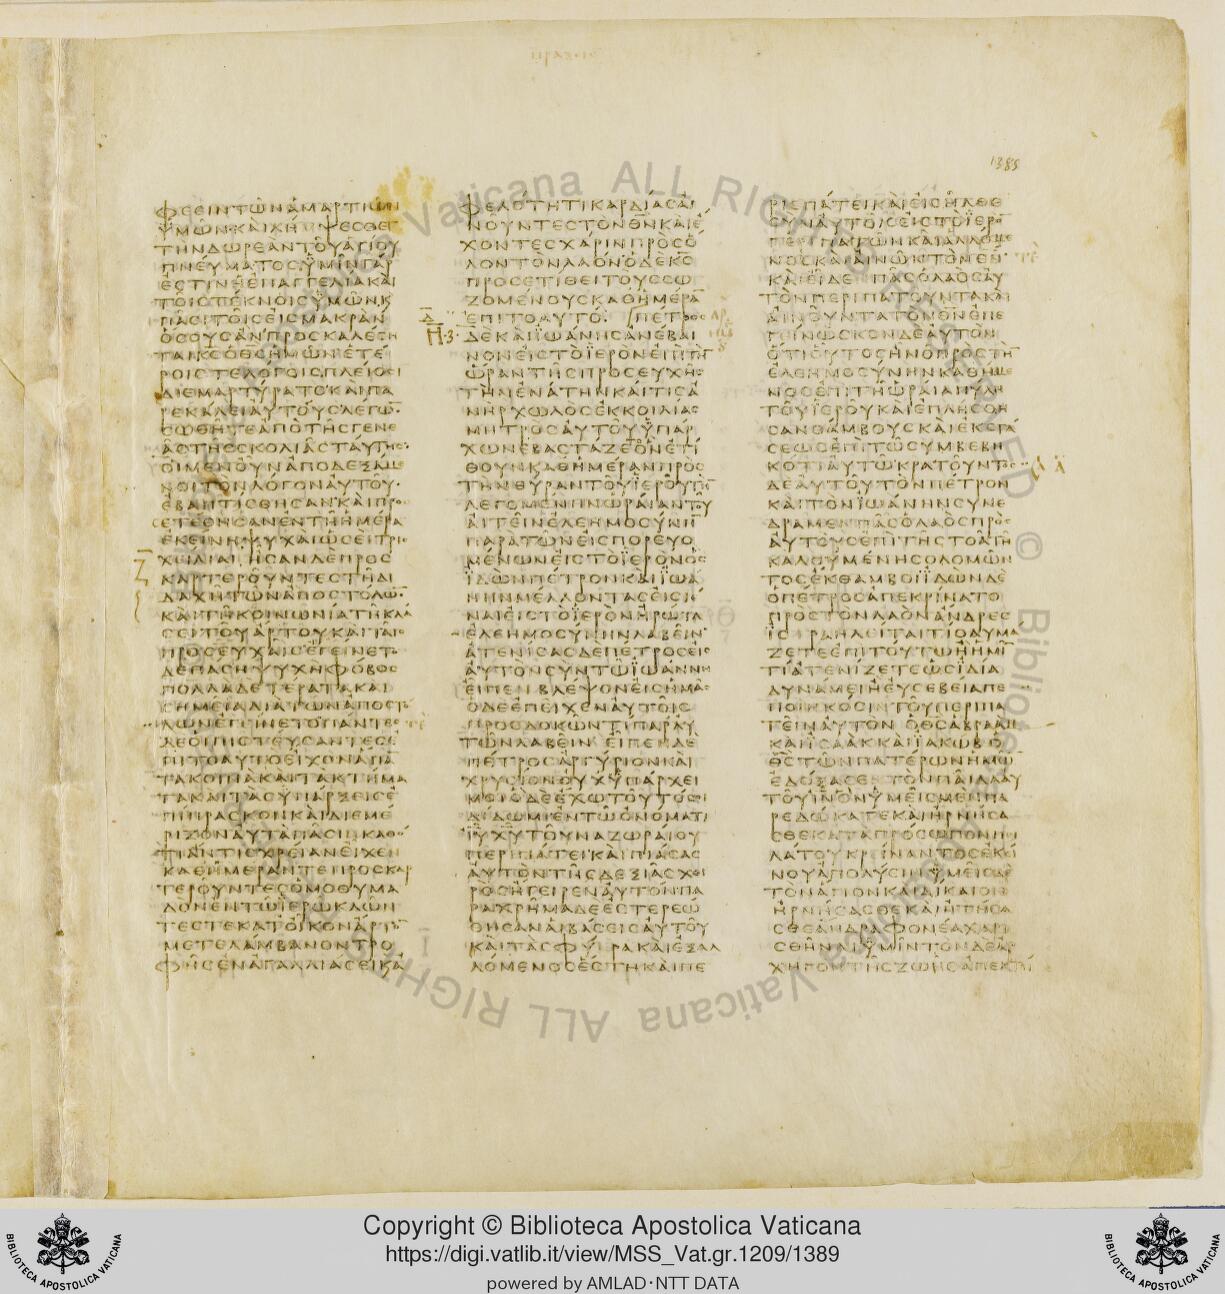 1385
φεσιν των αμαρτιων
υμων και λημψεσθε
την δωρεαν του αγιου
πνευματος υμιν γαρ
εστιν η επαγγελια και
τοις τεκνοις υμων κ
πασι τοις εις μακραν
οσους αν προσκαλεση
ται κς ο θς ημων ετε
ροις τε λογοις πλειοσι
διεμαρτυρατο και πα
ρεκαλει αυτους λεγω
σωθητε απο της γενε
ας της σκολιας ταυτης
οι μεν ουν αποδεξαμε
νοι τον λογον αυτου
εβαπτισθησαν και προ
ετεθησαν εν τη ημερα
εκεινη ψυχαι ωσει τρις
χιλιαι ησαν δε προς
καρτερουντες τη δι
δαχη των αποστολω
και τη κοινωνια τη κλα
σει του αρτου και ταις
προσευχαις εγεινετο
δε παση ψυχη φοβος
πολλα δε τερατα και
σημεια δια των αποστο
λων εγινετο παντες
δε οι πιστευσαντες ε
πι το αυτο ειχον απα
τα κοινα και τα κτημα
τα και τας υπαρξεις ε
πιπρασκον και διεμε
ριζον αυτα πασιν καθο
τι αν τις χρειαν ειχεν
καθ ημεραν τε προσκαρ
τερουντες ομοθυμα
δον εν τω ιερω κλων
τες τε κατ οικον αρτο
μετελαμβανον τρο
φης εν αγαλλιασει κα
αφελοτητι καρδιας αι
νουντες τον θν και ε
χοντες χαριν προς ο
λον τον λαον ο δε κς
προσετιθει τους σω
ζομενους καθ ημερα
επι το αυτο πετρος
δε και ιωανης ανεβαι
νον εις το ιερον επι τη
ωραν της προσευχης
την ενατην και τις α
νηρ χωλος εκ κοιλιας
μητρος αυτου υπαρ
χων εβασταζετο ον ετι
θουν καθ ημεραν προς
την θυραν του ιερου τη
λεγομενην ωραιαν του
αιτειν ελεημοσυνη
παρα των εισπορευο
μενων εις το ιερον ος
ιδων πετρον και ιωα
νην μελλοντας εισιε
ναι εις το ιερον ηρωτα
ελεημοσυνην λαβειν
ατενισας δε πετρος εις
αυτον συν τω ιωαννη
ειπεν βλεψον εις ημας
ο δε επειχεν αυτοις
προσδοκων τι παρ αυ
των λαβειν ειπεν δε
πετρος αργυριον και
χρυσιον ουχ υπαρχει
μοι ο δε εχω τουτο σοι
διδωμι εν τω ονοματι
ιυ χυ του ναζωραιου
περιπατει και πιασας
αυτον της δεξιας χει
ρος ηγειρεν αυτον πα
ραχρημα δε εστερεω
θησαν αι βασεις αυτου
και τα σφυδρα και εξαλ
λομενος εστη και πε
ριεπατει και εισηλθε
συν αυτοις εις το ιερο
περιπατων και αλλομε
νος και αινων τον θν
και ειδεν πας ο λαος αυ
τον περιπατουντα και
αινουντα τον θν επε
γεινωσκον δε αυτον
οτι ουτος ην ο προς τη
ελεημοσυνην καθημε
νος επι τη ωραια πυλη
του ιερου και επλησθη
σαν θαμβους και εκστα
σεως επι τω συμβεβη
κοτι αυτω κρατουντος
δε αυτου τον πετρον
και τον ιωανην συνε
δραμεν πας ο λαος προς
αυτους επι τη στοα τη
καλουμενη σολομων
τος εκθαμβοι ιδων δε
ο πετρος απεκρινατο
προς τον λαον ανδρες
ισραηλειται τι θαυμα
ζετε επι τουτω η ημι
τι ατενιζετε ως ιδια
δυναμει η ευσεβεια πε
ποιηκοσιν του περιπα
τειν αυτον ο θς αβρααμ
και ισαακ και ιακωβ ο
θς των πατερων ημω
εδοξασεν τον παιδα αυ
του ιν ον υμεις μεν πα
ρεδωκατε και ηρνησα
σθε κατα προσωπον πει
λατου κρειναντος εκει
νου απολυειν υμεις δε
τον αγιον και δικαιον
ηρνησασθε και ητησα
σθε ανδρα φονεα χαρι
σθηναι υμιν τον δε αρ
χηγον της ζωης απεκτει
Copyright © Biblioteca Apostolica Vaticana
https://digi.vatlib.it/view/MSS_Vat.gr.1209/1389
powered by AMLAD·NTT DATA